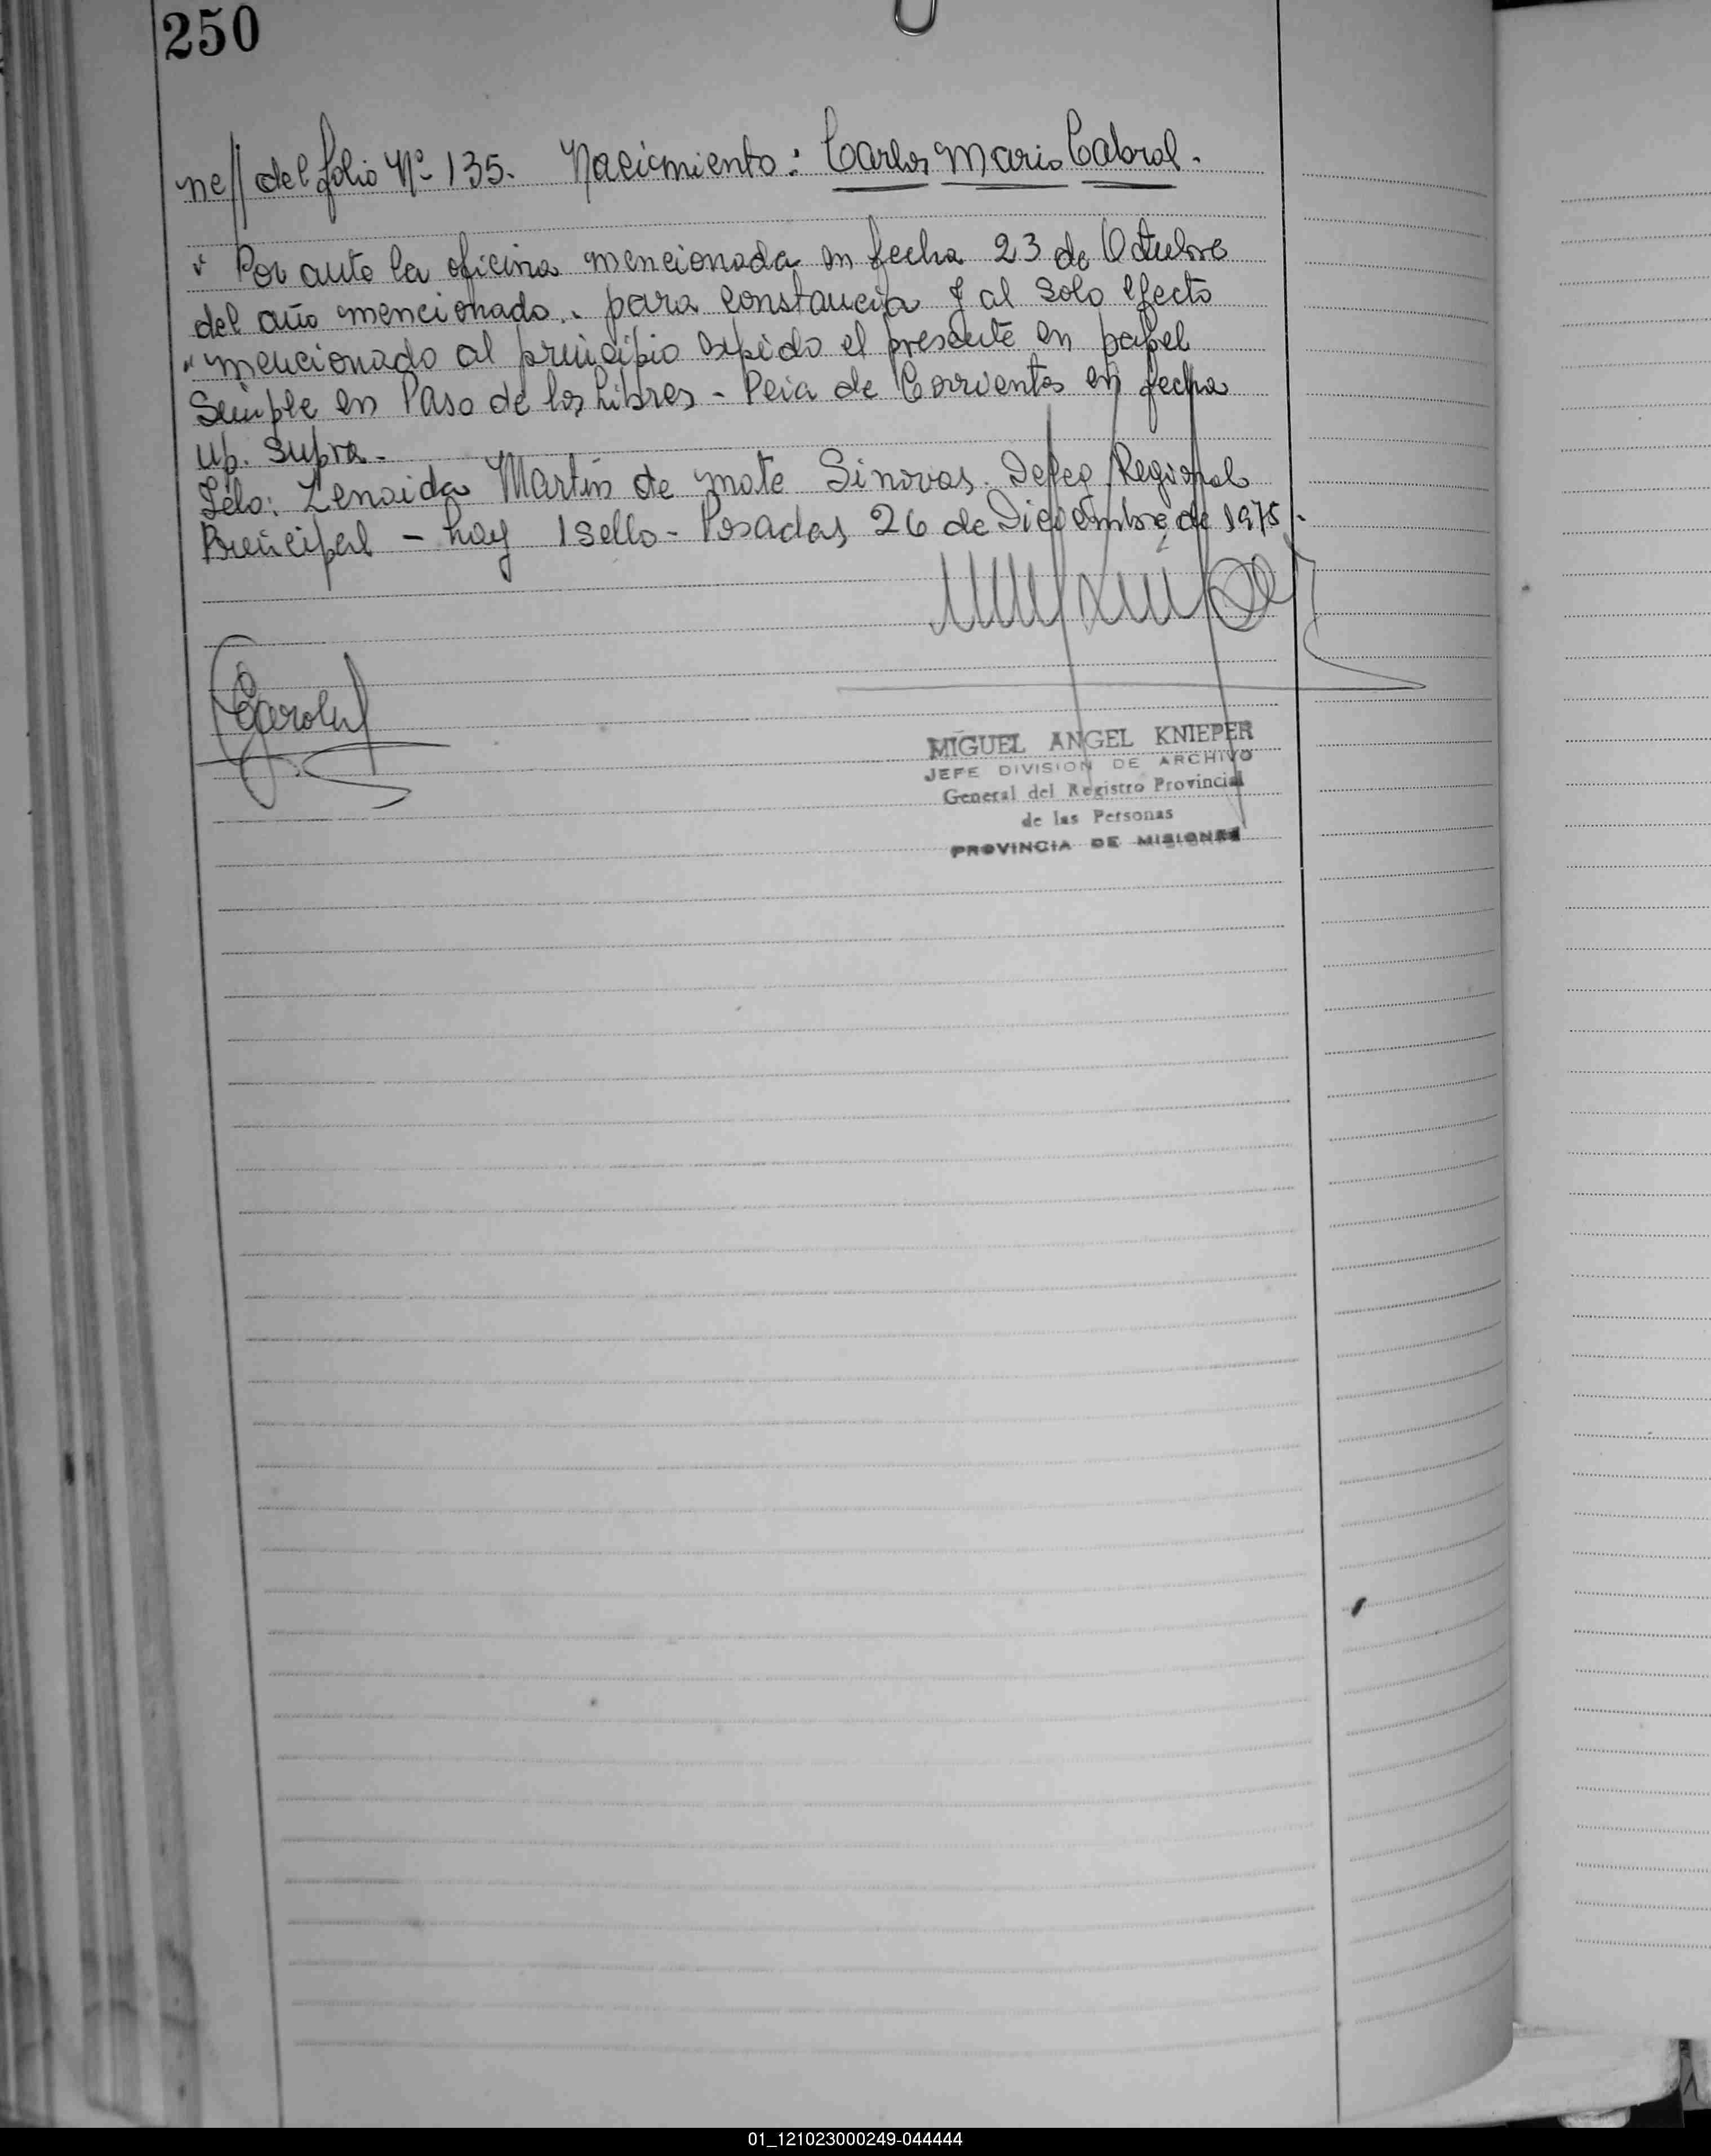 250
ne// del folio Nº 135. Nacimiento: Carlos Mario Cabral.
Por ante la oficina mencionada en fecha 23 de Octubre
del año mencionado. para constancia y al solo efecto
"mencionado al principio expido el presente en papel
Simple en Paso de los Libres - Pcia de Corrientes en fecha
up. supra.-
Fdo: Zenaida Martín de mote Sinovas. Jefe Regional
Principal - hay 1 sello - Posadas, 26 de Diciembre de 1975.
MIGUEL ANGEL KNIEPER
JEFE DIVISION DE ARCHIVO
General del Registro Provincial
de las Personas
PROVINCIA DE MISIONES
01_121023000249-044444